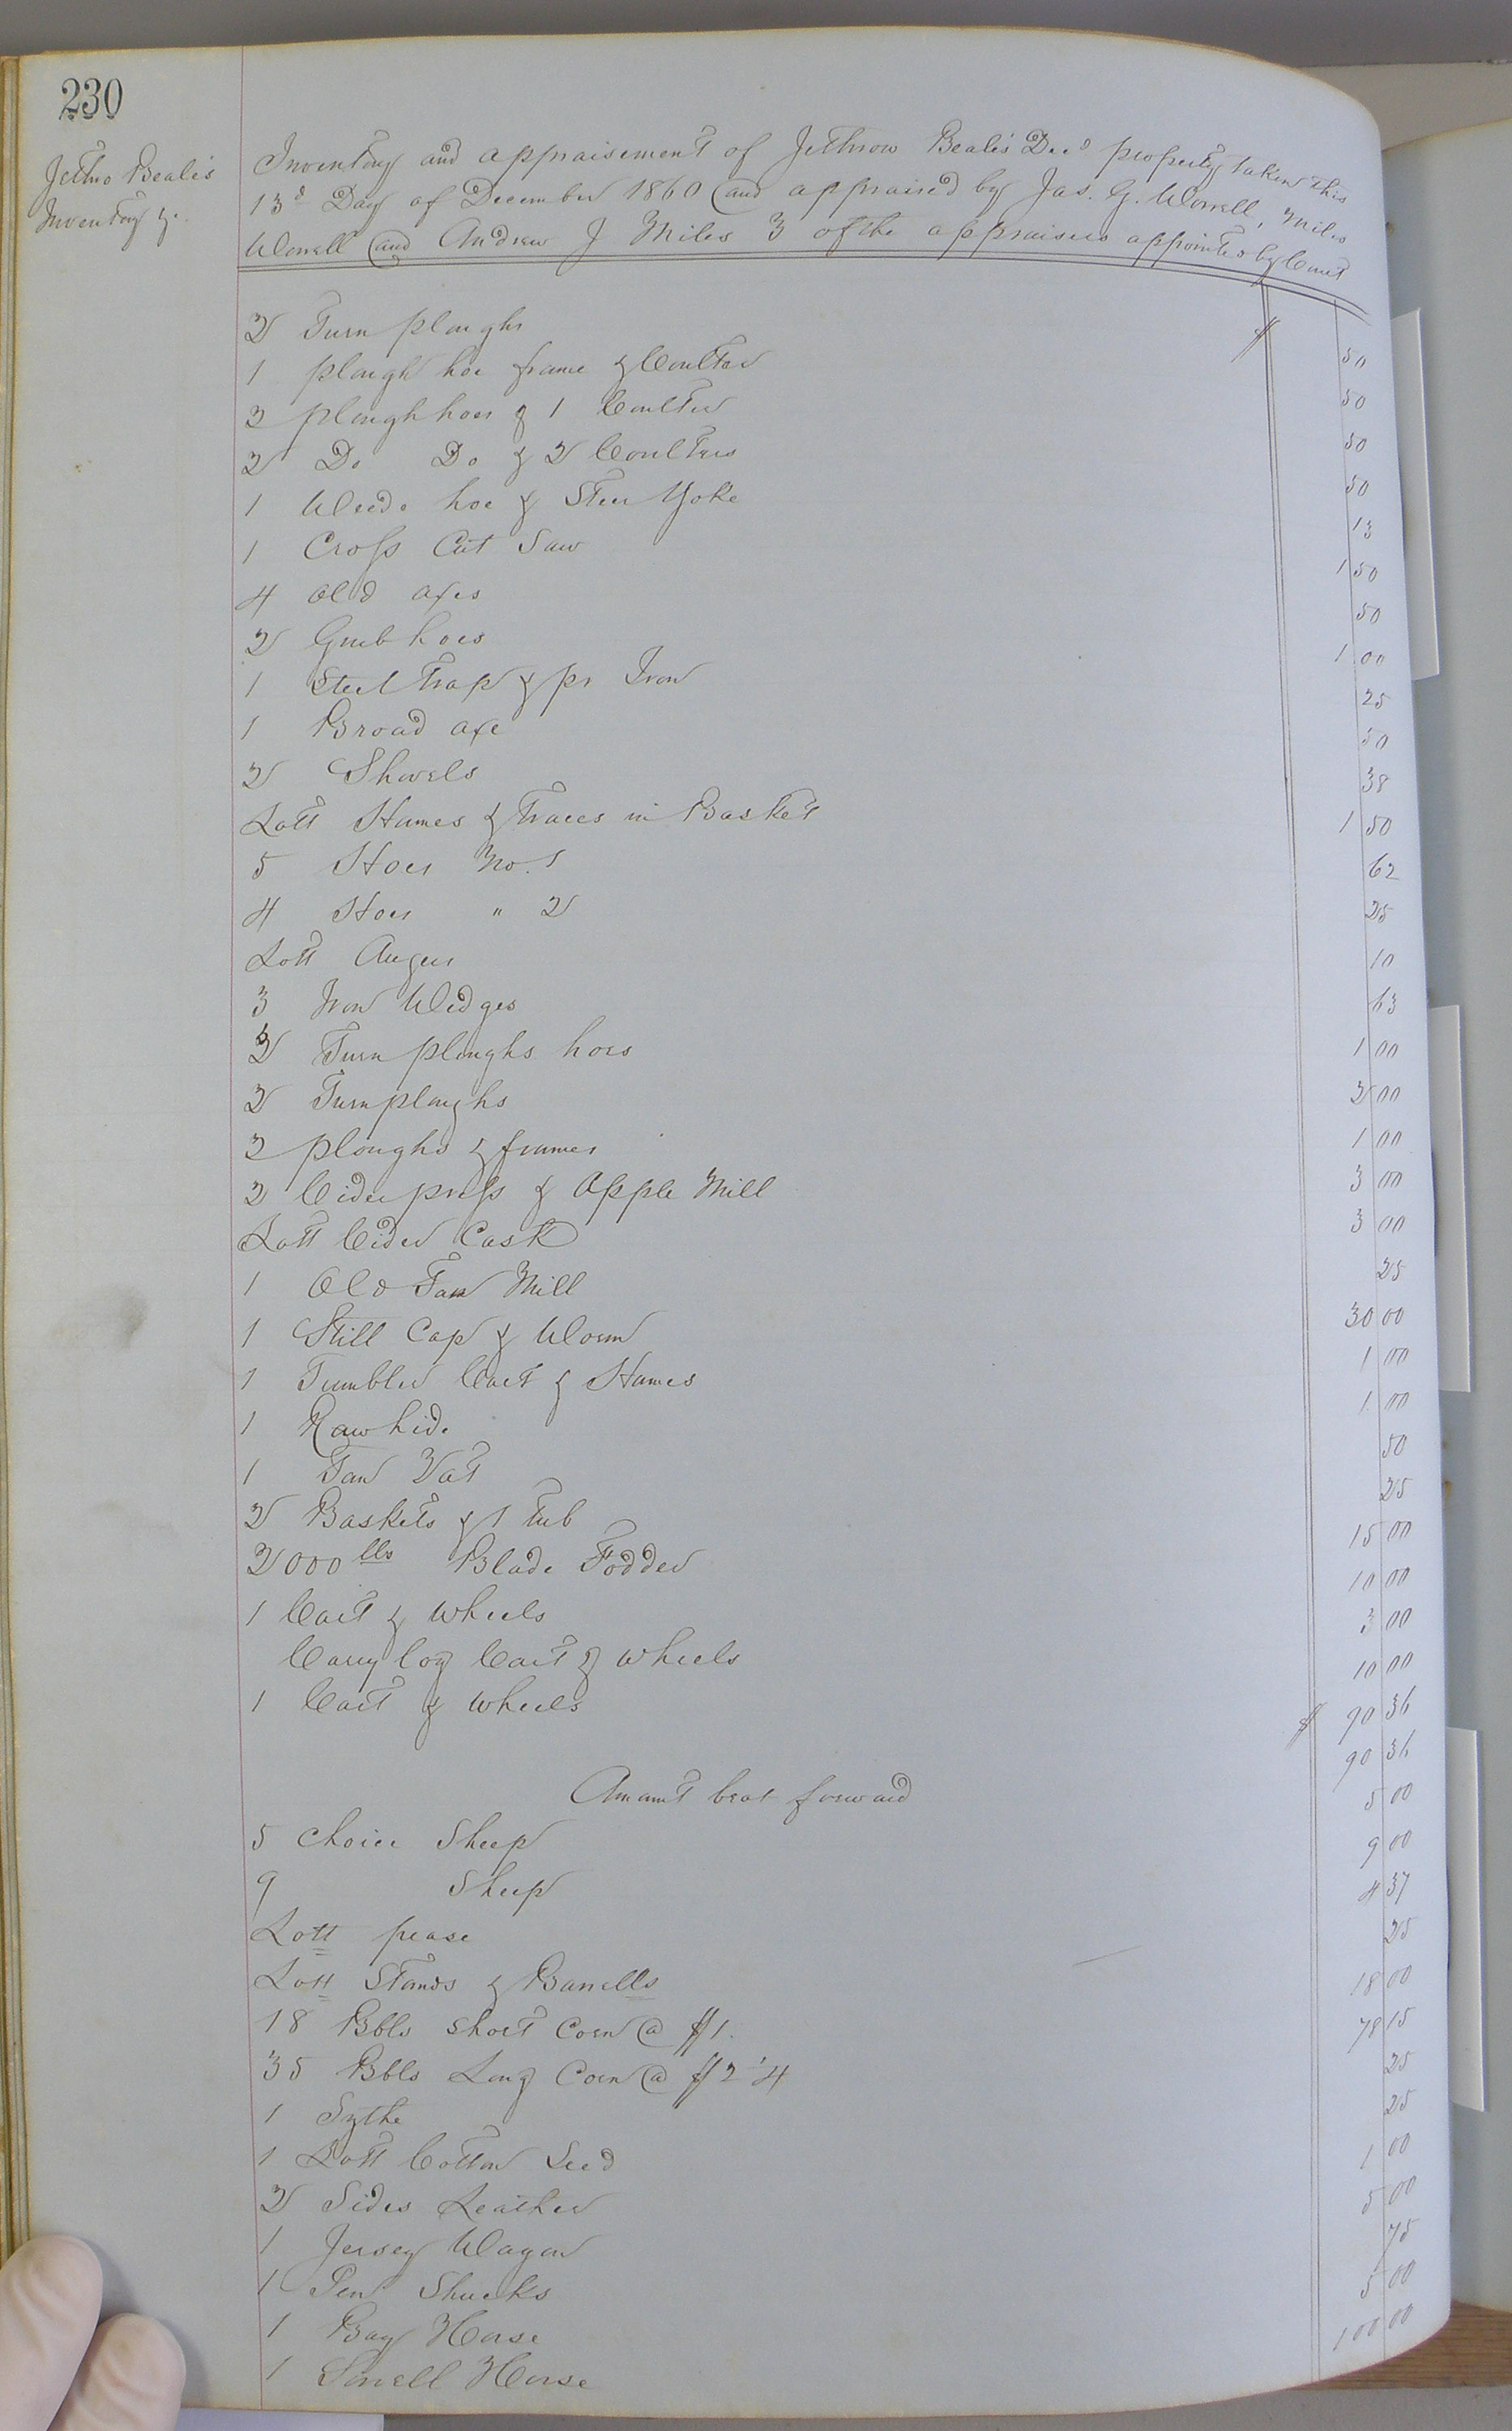 230
Jethro Beale's
Inventory &c.
Inventory and appraisement of Jethrow Beale's Decd property taken this
13d Day of December 1860 and appraised by Jas. G. Worrell, Miles
Worrell and Andrew J Miles 3 of the appraisers appointed by Court
2 Turn ploughs $ 50
1 plough hoe frame & Coulter 50
2 ploughhoes & 1 Coulter 50
2 Do Do & 2 Coulters 50
1 Weed hoe & Steer Yoke 13
1 Cross Cut Saw 1 50
4 old axes 50
2 Grub hoes 1 00
1 Steel trap & pr Iron 25
1 Broad axe 50
2 Shovels 38
Lott Hames & Traces in Basket 1 50
5 Hoes No. 1 62
4 Hoes " 2 25
Lott Augers 10
3 Iron Wedges 63
2 Turn ploughs hoes 1 00
2 Turnploughs 2 00
2 ploughs & frames 1 00
2 Cider press & Apple Mill 3 00
Lott Cider Cask 3 00
1 Old Fan Mill 25
1 Still Cap & Worm 30 00
1 Tumbler Cart & Hames 1 00
1 Rawhide 1 00
1 Tan Vat 50
2 Baskets & 1 tub 25
2000 lbs Blade Fodder 15 00
1 Cart & wheels 10 00
Carry log Cart & wheels 3 00
1 Cart & wheels 10 00
$ 90 36
Amamt brot forward 90 36
5 choice Sheep 5 00
9 Sheep 9 00
Lott pease 4 37
Lott Stands & Barrells 25
18 Bbls short Corn @ $1. 18 00
35 Bbls Long Corn @ $2 1/4 78 15
1 Sythe 25
1 Lott Cotton Seed 25
2 Sides Leather 1 00
1 Jersey Wagon 5 00
1 Pen Shucks 75
1 Bay Horse 5 00
1 Sorrell Horse 100 00